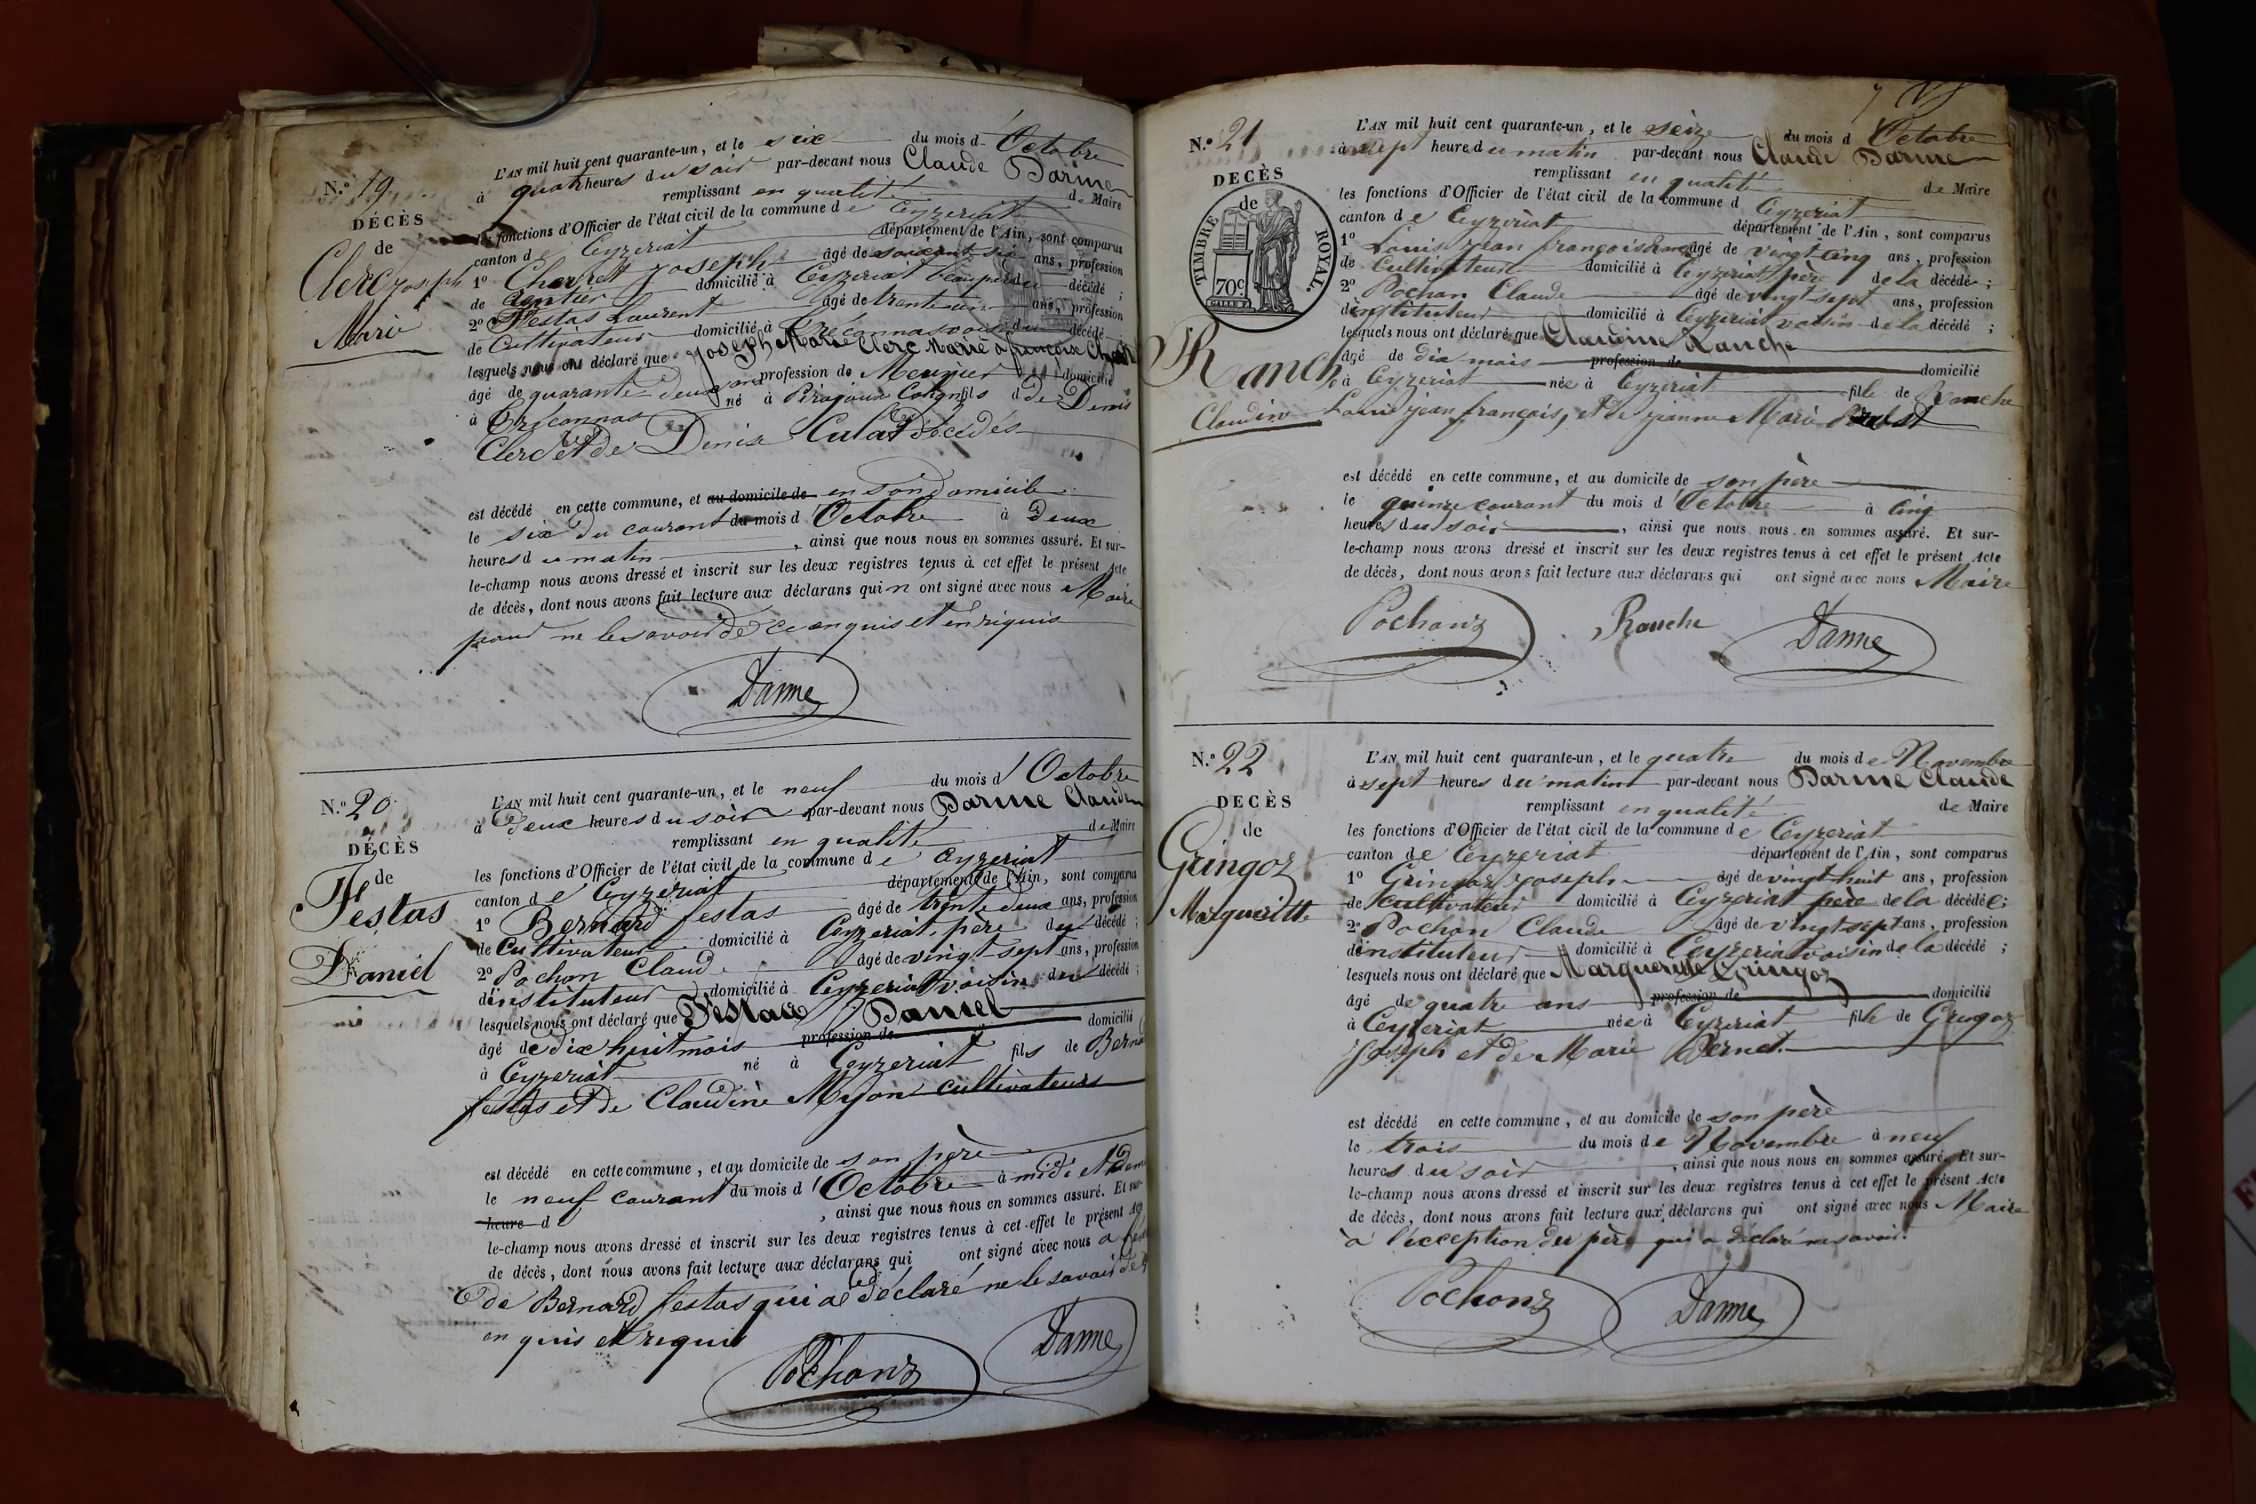 N.º 19
DÉCÈS
de
Clerc joseph
Marie
L'AN mil huit cent quarante-un, et le six du mois d'Octobre
à quatre heures du soir par-devant nous Claude Darme
remplissant en qualité de Maire
les fonctions d'Officier de l'état civil de la commune de Ceyzeriat
canton de Ceyzeriat département de l'Ain, sont comparus
1º joseph âgé de soixante six ans, profession
de Rentier domicilié à Ceyzeriat beaupère du décédé ;
2º Festas Laurent âgé de trente un ans, profession
de Cultivateur domicilié à voisin du décédé
lesquels nous ont déclaré que joseph Marie Clerc Marié à françoise
âgé de quarante deux ans profession de Meunier domicilié
à né à fils de Denis
Clerc et de Denise Culat Décédés
est décédé en cette commune, et au domicile de en son domicile
le six du courant du mois d'Octobre à deux
heures du matin , ainsi que nous nous en sommes assuré. Et sur-
le-champ nous avons dressé et inscrit sur les deux registres tenus à cet effet le présent Acte
de décès, dont nous avons fait lecture aux déclarans qui n ont signé avec nous Maire
pour ne le savoir de ce enquis et en riquis
Darme
N.º 20
DÉCÈS
de
Festas
Daniel
L'AN mil huit cent quarante-un, et le neuf du mois d'Octobre
à deux heures du soir par-devant nous Darme Claude
remplissant en qualité de Maire
les fonctions d'Officier de l'état civil de la commune de Ceyzeriat
canton de Ceyzériat département de l'Ain, sont comparus
1º Bernard festas âgé de trente deux ans, profession
de Cultivateur domicilié à Ceyzeriat père du décédé ;
2º Pochon Claude âgé de vingt sept ans, profession
d'instituteur domicilié à Ceyzeriat voisin du décédé ;
lesquels nous ont déclaré que Festas Daniel
âgé de dix huit mois profession de domicilié
à Ceyzeriat né à Ceyzeriat fils de Bernard
festas et de Claudine Myon cultivateurs
est décédé en cette commune, et au domicile de son père
le neuf courant du mois d'Octobre à midi et demi
heure d , ainsi que nous nous en sommes assuré. Et sur-
le-champ nous avons dressé et inscrit sur les deux registres tenus à cet effet le présent Acte
de décès, dont nous avons fait lecture aux déclarans qui ont signé avec nous
de Bernard festas qui a déclaré ne le savoir de
en quis et requis
Pochon Darme
N.º 21
DECÈS
de
TIMBRE ROYAL.
70c
Ranche
Claudine
L'AN mil huit cent quarante-un, et le seize du mois d'Octobre
à sept heures du matin par-devant nous Claude Darme
remplissant en qualité de Maire
les fonctions d'Officier de l'état civil de la commune d Ceyzeriat
canton de Ceyzeriat département de l'Ain, sont comparus
1º Louis jean françois Ranche âgé de vingt cinq ans, profession
de Cultivateur domicilié à Ceyzeriat père de la décédé ;
2º Pochon Claude âgé de vingt sept ans, profession
d'instituteur domicilié à Ceyzeriat voisin de la décédé ;
lesquels nous ont déclaré que Claudine Ranche
âgé de dix mois profession de domicilié
à Ceyzeriat née à Ceyzeriat fille de Ranche
Louis jean françois, et de jeanne Marie
est décédé en cette commune, et au domicile de son père
le quinze courant du mois d'Octobre à cinq
heures du soir , ainsi que nous nous en sommes assuré. Et sur-
le-champ nous avons dressé et inscrit sur les deux registres tenus à cet effet le présent Acte
de décès, dont nous avons fait lecture aux déclarans qui ont signé avec nous Maire
Pochon Ranche Darme
N.º 22
DECÈS
de
Gringoz
Margueritte
L'AN mil huit cent quarante-un, et le quatre du mois de Novembre
à sept heures du matin par-devant nous Darme Claude
remplissant en qualité de Maire
les fonctions d'Officier de l'état civil de la commune de Ceyzeriat
canton de Ceyzeriat département de l'Ain, sont comparus
1º Gringoz joseph âgé de vingt huit ans, profession
de Cultivateur domicilié à Ceyzeriat père de la décédée ;
2º Pochon Claude âgé de vingt sept ans, profession
d'instituteur domicilié à Ceyzeriat voisin de la décédé ;
lesquels nous ont déclaré que Marguerite Gringoz
âgé de quatre ans profession de domicilié
à Ceyzeriat née à Ceyzeriat fille de Gringoz
Joseph et de Marie Bernet
est décédé en cette commune, et au domicile de son père
le trois du mois de Novembre à neuf
heures du soir , ainsi que nous nous en sommes assuré. Et sur-
le-champ nous avons dressé et inscrit sur les deux registres tenus à cet effet le présent Acte
de décès, dont nous avons fait lecture aux déclarans qui ont signé avec nous Maire
à l'écception du père qui a déclaré ne savoir.
Pochon Darme